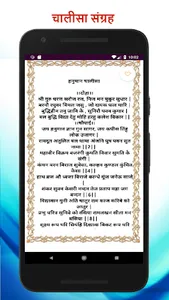 चालीसा संग्रह
हनुमान चालीसा
||दोहा||
श्री गुरु चरण सरोज रज, निज मन मुकुर सुधार |
बरनौ रघुबर बिमल जसु, जो दायक फल चारि |
बुद्धिहीन तनु जानि के, सुमिरौ पवन कुमार |
बल बुद्धि विद्या देहु मोहि हरहु कलेश विकार ||
||चौपाई||
जय हनुमान ज्ञान गुन सागर, जय कपीस तिंहु
लोक उजागर |
रामदूत अतुलित बल धामा अंजनि पुत्र पवन सुत
नामा ||2||
महाबीर बिक्रम बजरंगी कुमति निवार सुमति के
संगी |
कंचन बरन बिराज सुबेसा, कानन कुण्डल कुंचित
केसा ||4||
हाथ बज्र औ ध्वजा विराजे कान्धे मूंज जनेऊ साजे
शंकर सुवन केसरी नन्दन तेज प्रताप महा जग
बन्दन ||6||
विद्यावान गुनी अति चातुर राम काज करिबे को
आतुर |
प्रभु चरित्र सुनिबे को रसिया रामलखन सीता मन
बसिया ||8||
सूक्ष्म रूप धरि सियंहि दिखावा बिकट रूप धरि